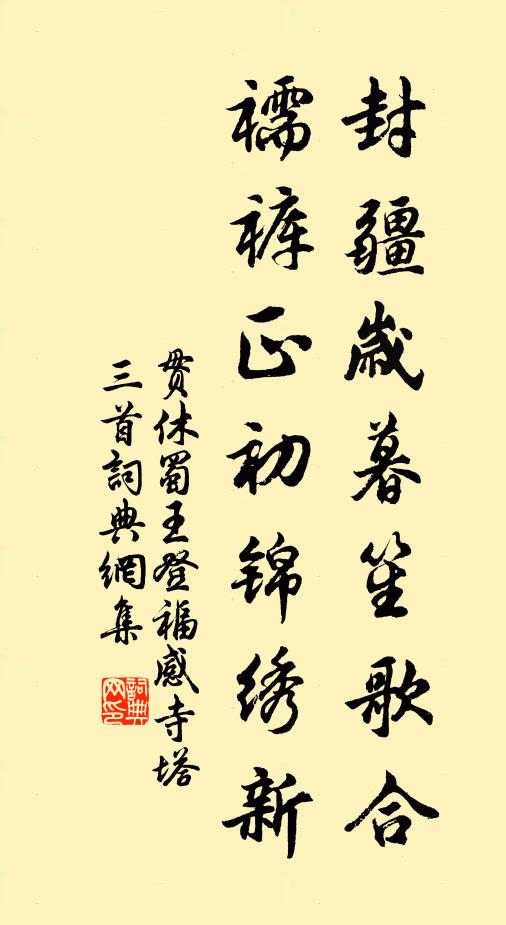 封疆歲暮笙歌合
襦裤正初锦绣新
贯休蜀王登福感寺塔
三首詞典網集
詞典
网印